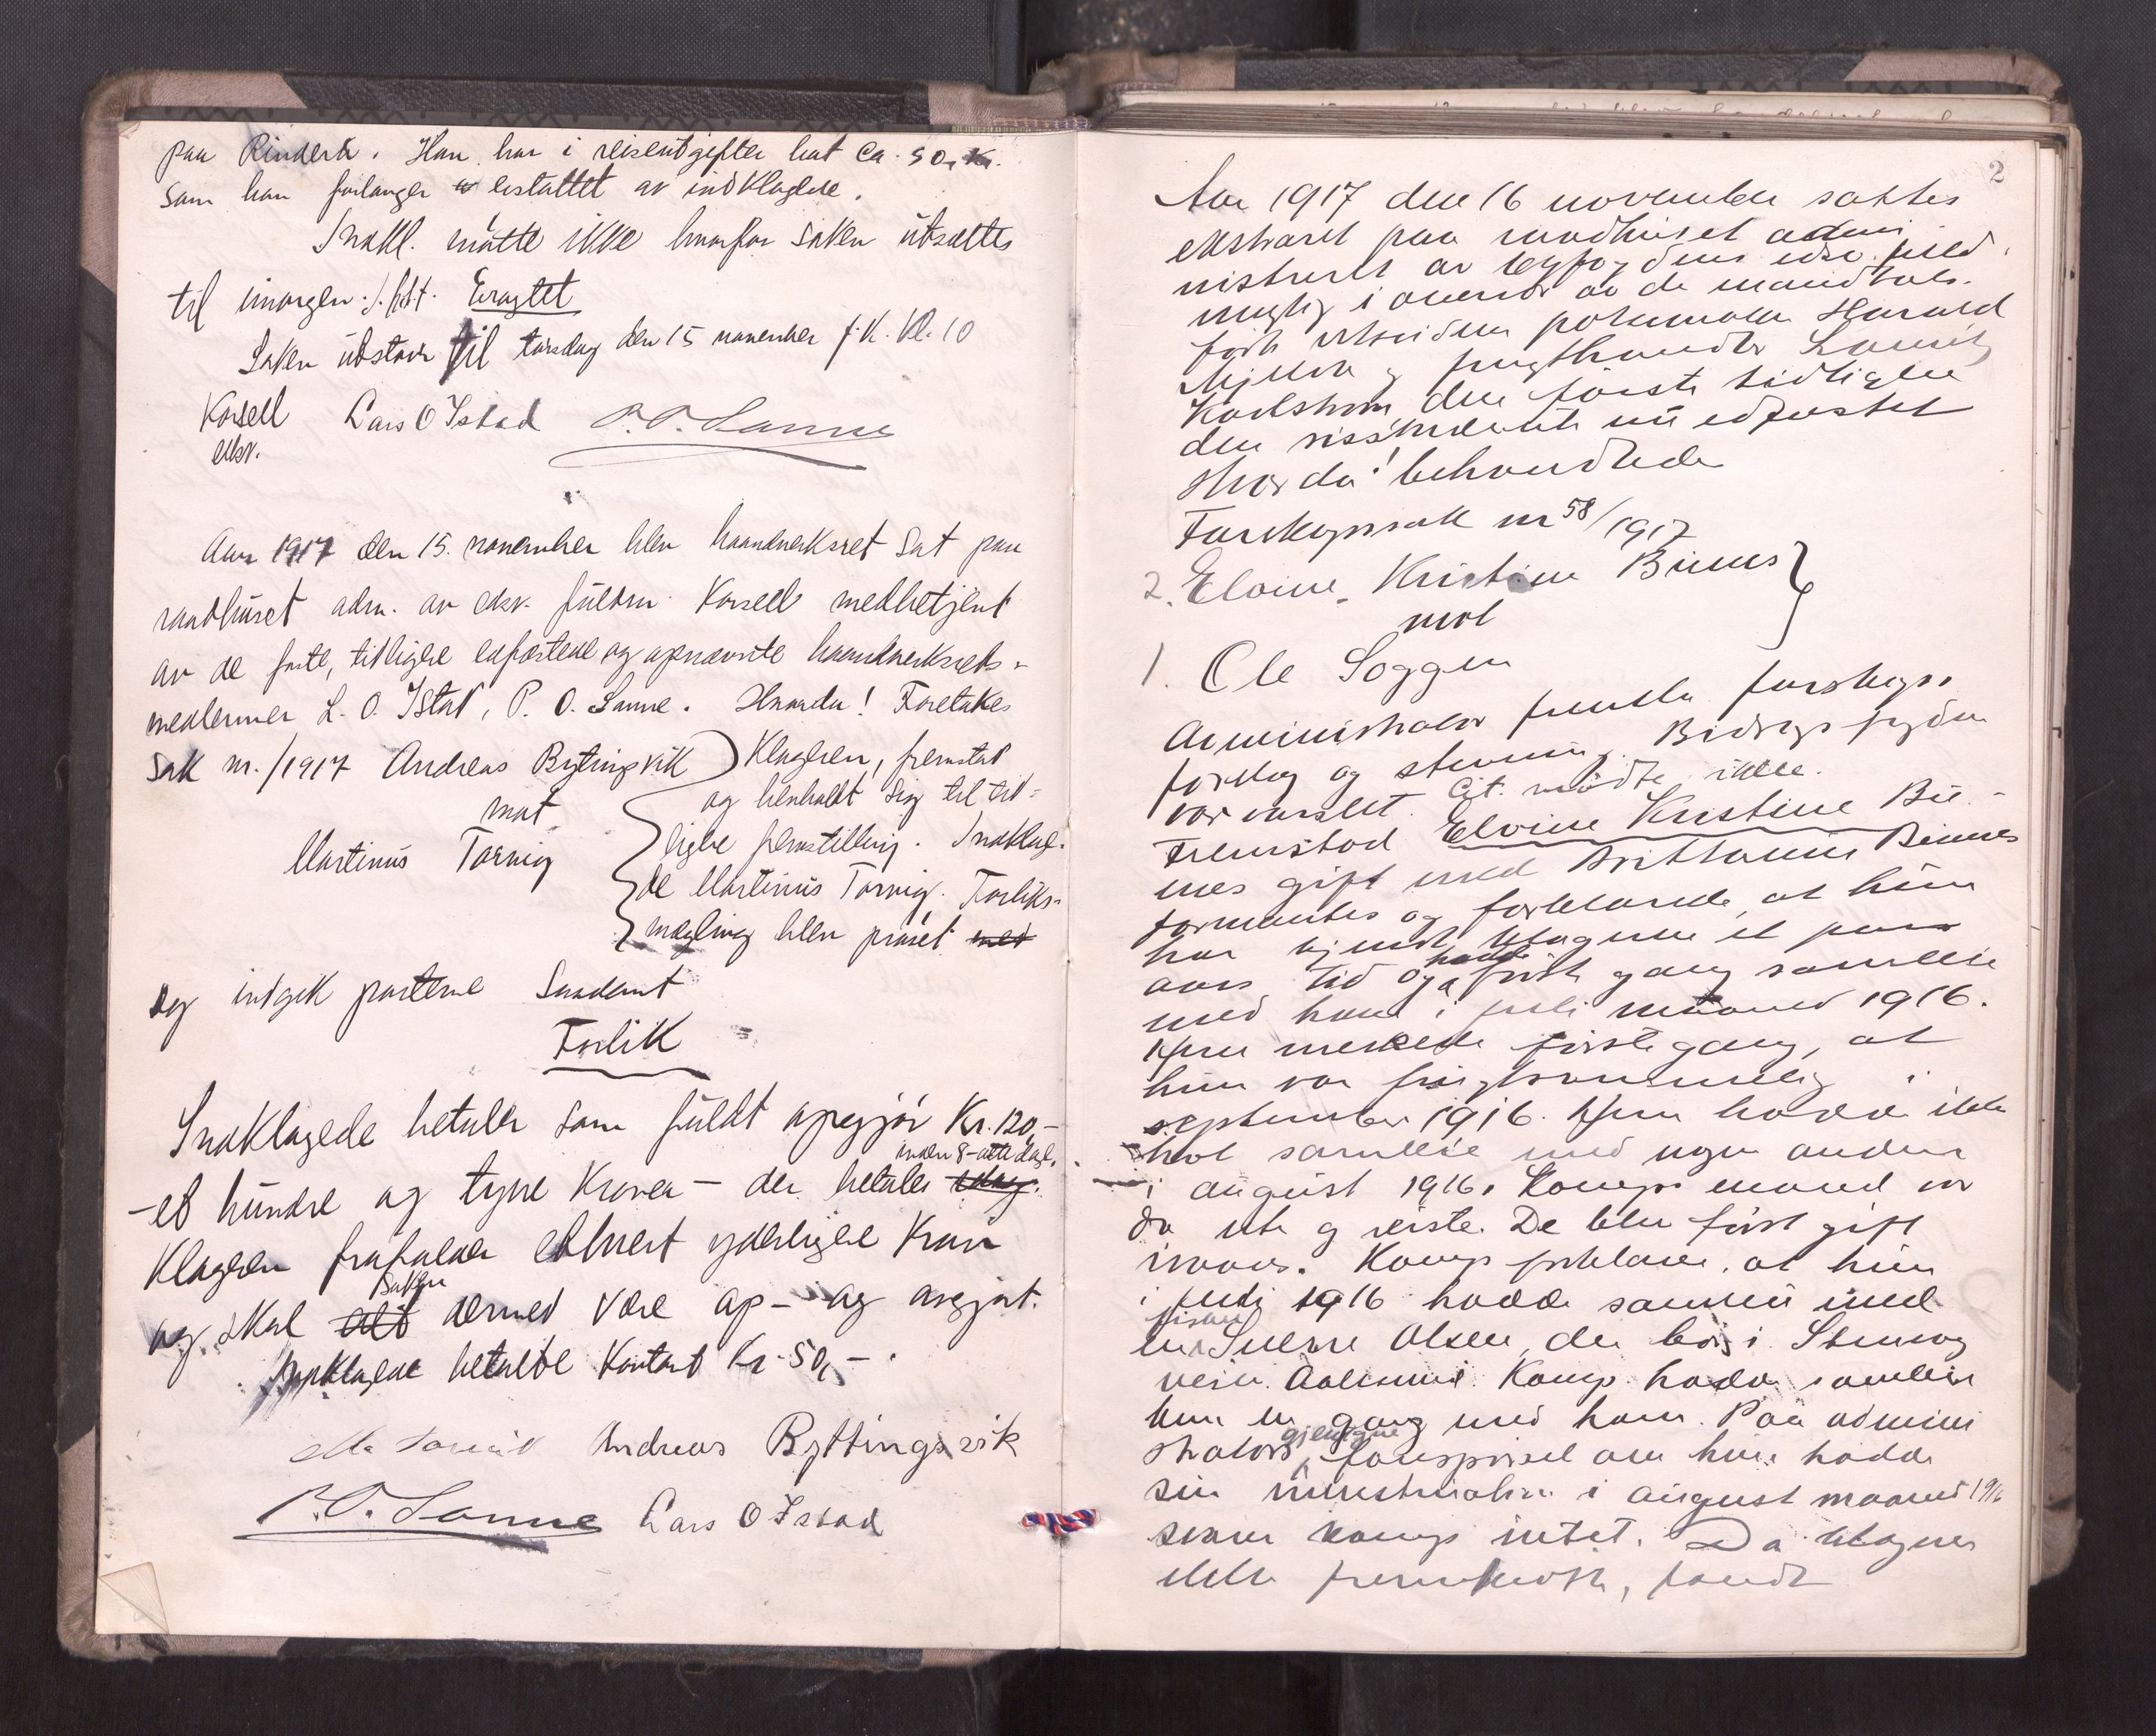 paa Rinderö. Han har i reiseutgifter hat ca. 50, Kr.
som han forlanger erstattet av indklagede.
Indkl. mötte ikke hvorfor saken utsættes
til imorgen. Eragtet
Saken utstaar til torsdag den 15 november f.K. Kl. 10
Korsell Lars O Istad P.O. Sanne
eksv.
Aar 1917 den 15. november blev haandverksret sat paa
raadhuset adm. av eksv. fuldm. Korsell medbetjent
av de faste, tidligere edfæstede og opnævnte haandverksrets-
medlemmer L. O. Istad, P. O. Sanne. Hvorda! Foretakes
Sak nr. /1917 Andreas Bytingsvik Klageren, fremstod
mot og henholdt sig til tid-
ligere fremstilling. Indklag-
Martinus Tarvig de Martinus Tarvig. Forliks-
mægling blev prøvet med
og indgik parterne Saadant
Forlik
Indklagede betaler som fuldt opgjör Kr. 120,-
inden 8-otte dage.
-et hundre og tyve Kroner - der betales idag.
Klageren frafalder ethvert yderligere Krav
Saken
og skal alt dermed være op- og avgjort.
Indklagede betalte Kontant Kr. 50,-.
Andreas Byttingsvik
P.O. Sanne Lars O Istad
2
Aar 1917 den 16 november sattes
ekstraret paa raadhuset admi
nistreret av byfogdens edsv. fuld
mægtig i overvær av de mandtals-
förte retsvidner Harald
og frugthandler Lauritz
Karlstrøm, den förste tidligere
den sisstnævnte nu edfæstet
Hvorda! behandledes
Farskapssak nr 58/1917
2. Elvine Kristine Biunes
mot
1. Ole Soggen
Administrator fremla farskaps-
forelæg og stevning. Bidragsfogden
var varslet. Cit. mödte ikke.
Fremstod Elvine Kristine Biu-
nes gift med Brittanus Biunes
formantes og forklarede, at hun
har kjendt klageren et pars
hadde
aars tid og förste gang samleie
med ham i juli maaned 1916.
Hun merkede förste gang, at
hun var frugtsommelig i
september 1916. Hun hadde ikke
hat samleie med nogen anden
i august 1916. Komp. mand var
da ute og reiste. De blev först gift
ivaares. Komp forklarer, at hun
i juli 1916 hadde samleie med
fisker
en Sverre Olsen, der bor i Stenvaag
veien Aalesund. Komp. hadde samleie
kun en gang med ham. Paa admini
gjentagne
strators forespørsel om hun hadde
sin menstruation i august maaned 1916
svarer komp intet. Da klageren
ikke fremmötte, fandt